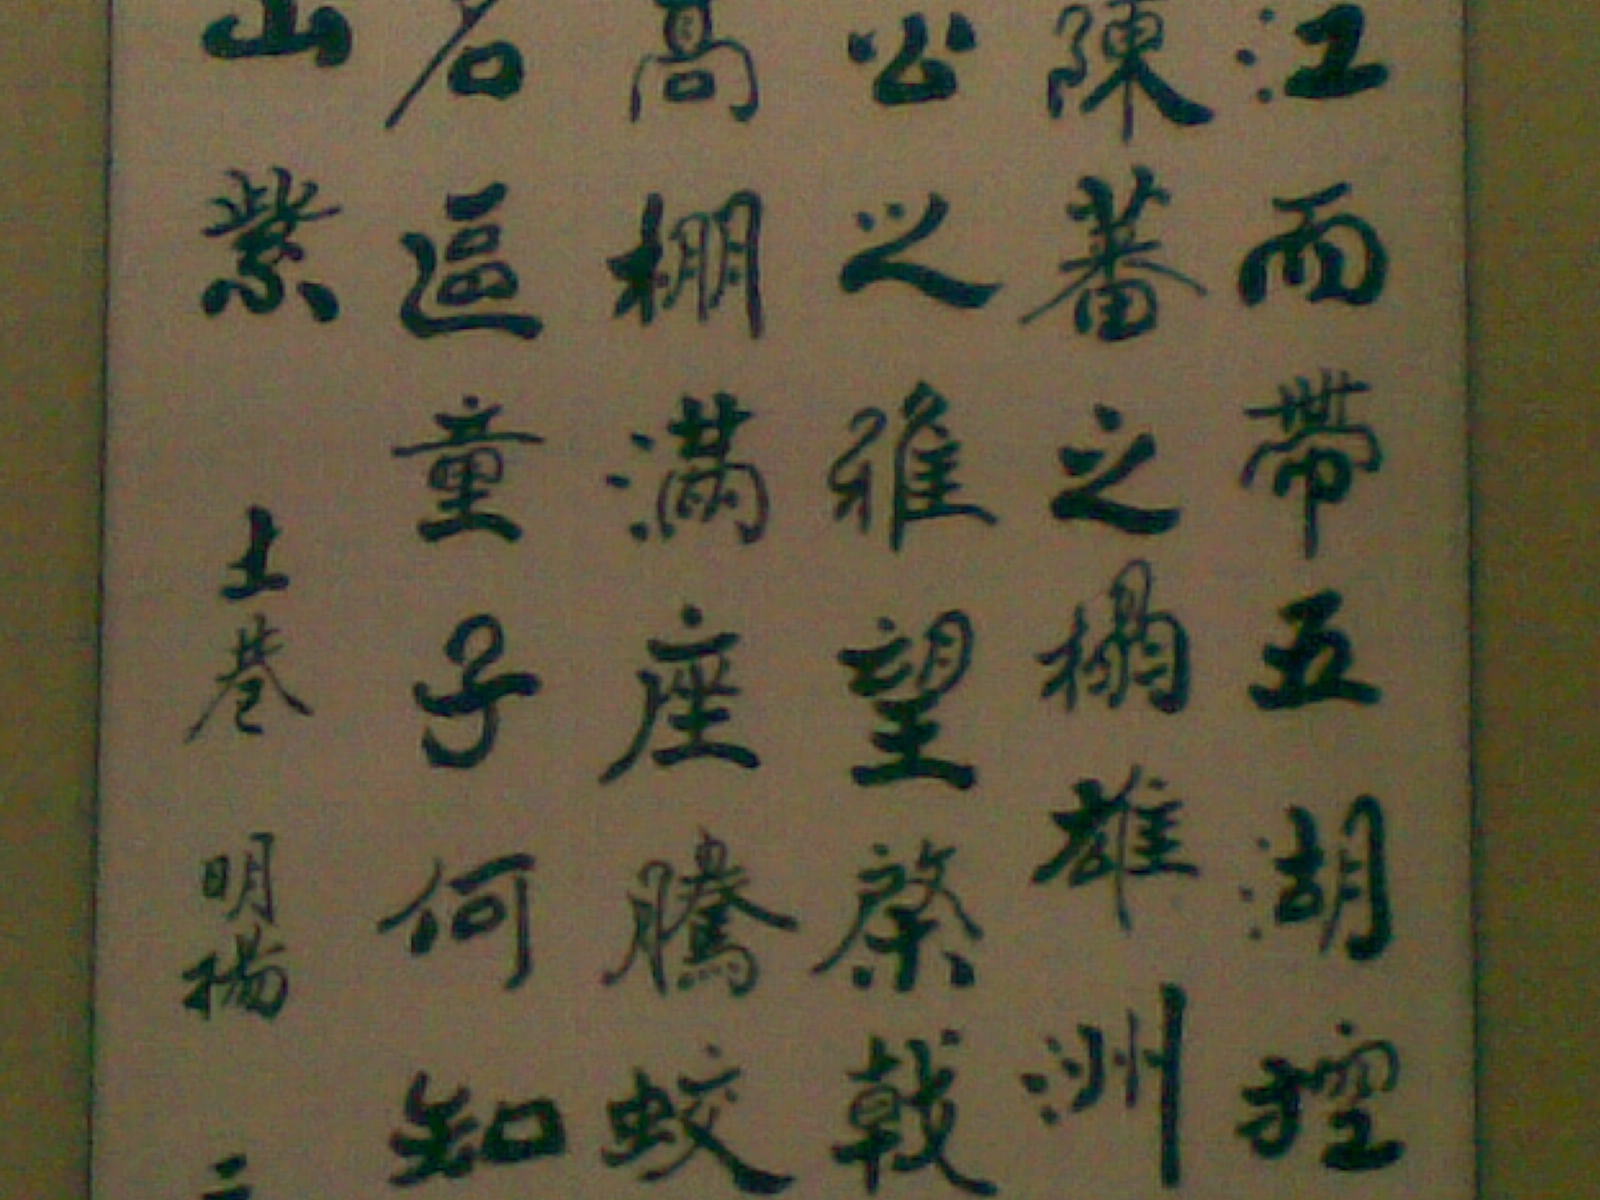 江而帶五湖控
陳蕃之榻雄洲
公之雅望棨戟
高棚滿座騰蛟
名區童子何知
山紫 土巷 明